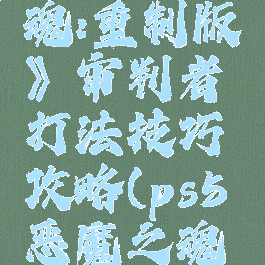 魂:重制版
》审判者
打法技巧
攻略(ps5
恶魔之魂